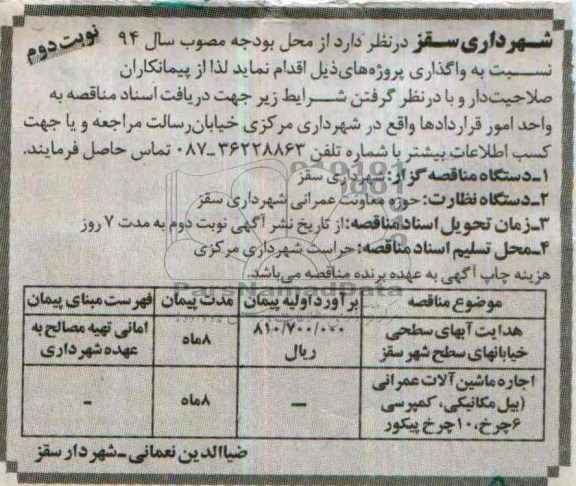 نوبت دوم
شهرداری سقز درنظر دارد از محل بودجه مصوب سال ۹۴
نسبت به واگذاری پروژه‌های‌ذیل اقدام نماید لذا از پیمانکاران
صلاحیت‌دار و با درنظر گرفتن شرایط زیر جهت دریافت اسناد مناقصه به
واحد امور قراردادها واقع در شهرداری مرکزی خیابان‌رسالت مراجعه و یا جهت
کسب اطلاعات بیشتر با شماره تلفن ۳۶۲۲۸۸۶۳-۰۸۷ تماس حاصل فرمایند.
۱-دستگاه مناقصه گزار: شهرداری سقز
۲-دستگاه نظارت: حوزه معاونت عمرانی شهرداری سقز
۳-زمان تحویل اسناد مناقصه: از تاریخ نشر آگهی نوبت دوم به مدت ۷ روز
۴-محل تسلیم اسناد مناقصه: حراست شهرداری مرکزی
هزینه چاپ آگهی به عهده برنده مناقصه می‌باشد.
ParsNamadData
موضوع مناقصه برآورد اولیه پیمان مدت پیمان فهرست مبنای پیمان
هدایت آبهای سطحی ۸۱۰/۷۰۰/۰۰۰ ۸ماه امانی تهیه مصالح به
خیابانهای سطح شهر سقز ریال عهده شهرداری
اجاره ماشین آلات عمرانی
(بیل مکانیکی، کمپرسی — ۸ماه -
۶چرخ، ۱۰چرخ پیکور
ضیاالدین نعمانی-شهردار سقز